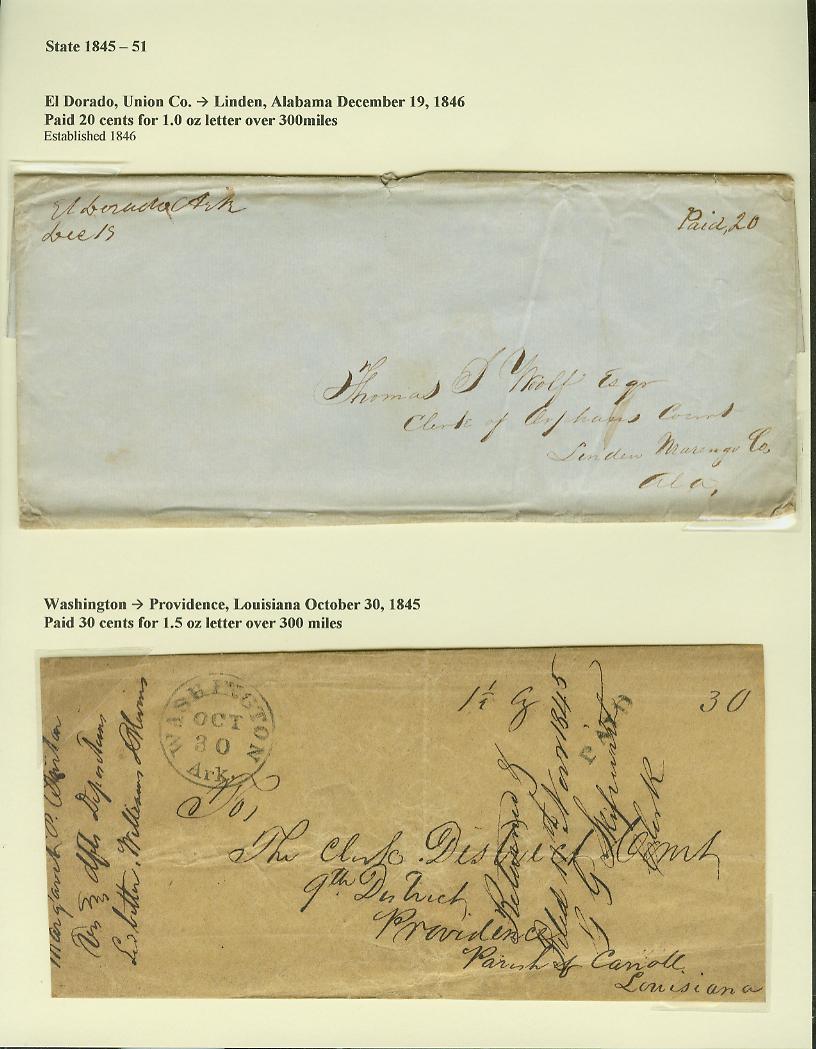 State 1845 – 51
El Dorado, Union Co. → Linden, Alabama December 19, 1846
Paid 20 cents for 1.0 oz letter over 300miles
Established 1846
El Dorado Ark
Dec 19
Paid, 20
Thomas Wolf Esqr
Clerk of Orphans Court
Linden Marengo Co
Ala,
Washington → Providence, Louisiana October 30, 1845
Paid 30 cents for 1.5 oz letter over 300 miles
WASHINGTON
OCT
30
Ark.
1½ Oz
PAID
30
To,
The Clerk District Court
9th District
Providence
Parish of Carroll
Louisiana
Margaret P.
Vs dfts Depositions
Ledbetter, Williams
Returned &
Filed Novr 1845
Clerk